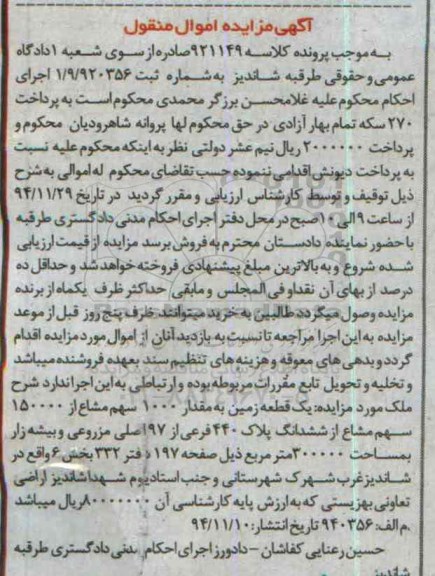 آگهی مزایده اموال منقول
به موجب پرونده کلاسه ۹۲۱۱۴۹صادره از سوی شعبه ۱دادگاه
عمومی وحقوقی طرقبه شاندیز به شماره ثبت ۱/۹/۹۲۰۳۵۶ اجرای
احکام محکوم علیه غلامحسن برزگر محمدی محکوم است به پرداخت
۲۷۰سکه تمام بهار آزادی در حق محکوم لها پروانه شاهرودیان محکوم و
پرداخت ۲۰۰۰۰۰۰ ریال نیم عشر دولتی نظر به اینکه محکوم علیه نسبت
به پرداخت دیونش اقدامی ننموده حسب تقاضای محکوم له اموالی به شرح
ذیل توقیف و توسط کارشناس ارزیابی و مقرر گردید در تاریخ ۹۴/۱۱/۲۹
از ساعت ۹الی ۱۰صبح در محل دفتر اجرای احکام مدنی دادگستری طرقبه
با حضور نماینده دادستان محترم به فروش برسد مزایده از قیمت ارزیابی
شده شروع و به بالاترین مبلغ پیشنهادی فروخته خواهد شد و حداقل ده
درصد از بهای آن نقدا و فی المجلس و مابقی حداکثر ظرف یکماه از برنده
مزایده وصول میگردد طالبین به خرید میتوانند ظرف پنج روز قبل از موعد
مزایده به این اجرا مراجعه تا نسبت به بازدید آنان از اموال مورد مزایده اقدام
گردد و بدهی های معوقه و هزینه های تنظیم سند بعهده فروشنده میباشد
و تخلیه و تحویل تابع مقررات مربوطه بوده و ارتباطی به این اجرا ندارد شرح
ملک مورد مزایده: یک قطعه زمین به مقدار ۱۰۰۰ سهم مشاع از ۱۵۰۰۰۰
سهم مشاع از ششدانگ پلاک ۴۴۰فرعی از ۱۹۷صلی مزروعی و بیشه زار
بمساحت ۳۰۰۰۰۰متر مربع ذیل صفحه ۱۹۷ دفتر ۳۳۲بخش ۶واقع در
شاندیز غرب شهرک شهرستانی و جنب استادیوم شهدا شاندیز اراضی
تعاونی بهزیستی که به ارزش پایه کارشناسی آن ۸۰۰۰۰۰۰۰ریال میباشد
.م الف:۹۴۰۳۵۶ تاریخ انتشار:۹۴/۱۱/۱۰
حسین رعنایی کفاشان - دادورز اجرای احکام مدنی دادگستری طرقبه
شاندیز